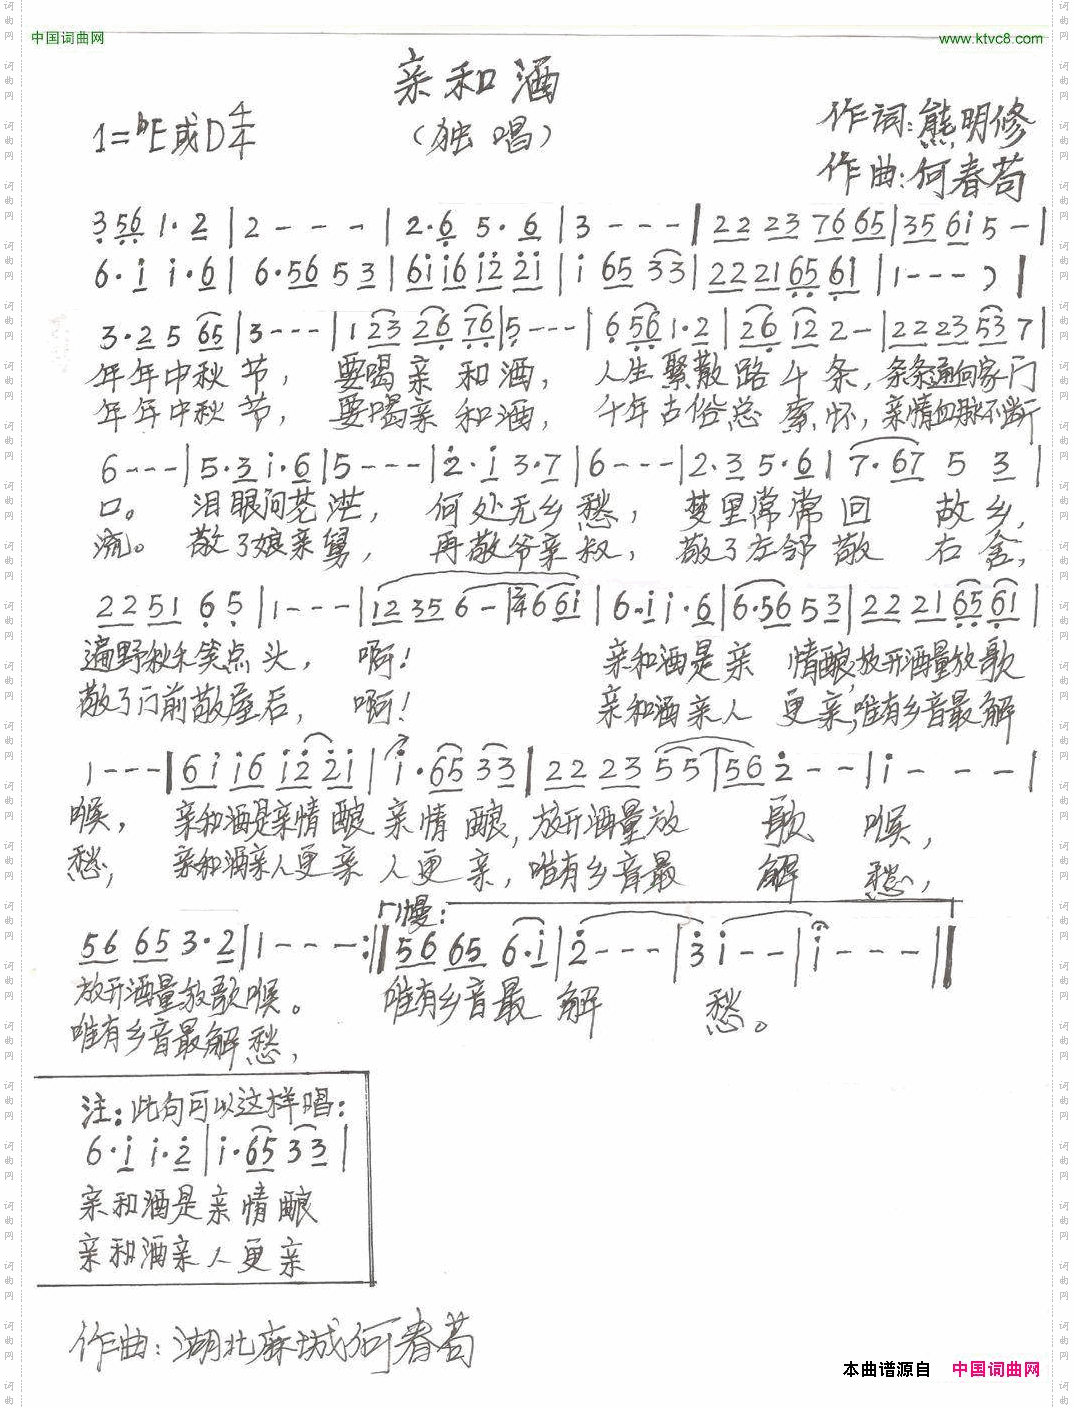 中国词曲网
www.ktvc8.com
亲和酒
1=ᵇE或D 4/4
(独唱)
作词:熊明修
作曲:何春苟
3 56 1·2 | 2 - - - | 2·6 5·6 | 3 - - - | 22 23 76 65 | 35 6i 5 - |
6·i i·6 | 6·56 5 3 | 6i i6 i2 2i | i 65 33 | 22 21 65 61 | 1 - - - ) |
3·2 5 65 | 3 - - - | 1 23 26 76 | 5 - - - | 6 56 1·2 | 26 12 2 - | 22 23 53 7 |
年年中秋节, 要喝亲和酒, 人生聚散路千条,条条通向家门
年年中秋节, 要喝亲和酒, 千年古俗总萦怀,亲情血脉不断
6 - - - | 5·3 i·6 | 5 - - - | 2·i 3·7 | 6 - - - | 2·3 5·6 | 7·67 5 3 |
口。 泪眼问苍茫, 何处无乡愁, 梦里常常回故乡,
流。 敬了娘亲舅, 再敬爷亲叔, 敬了左邻敬右舍,
22 51 6 5 | 1 - - - | 12 35 6 - | 2/4 6 6i | 6·i i·6 | 6·56 53 | 22 21 65 61 |
遍野秋禾笑点头, 啊! 亲和酒是亲情酿,放开酒量放歌
敬了门前敬屋后, 啊! 亲和酒亲人更亲,唯有乡音最解
1 - - - | 6i i6 i2 2i | i·65 33 | 22 23 55 | 56 2 - - | i - - - |
喉, 亲和酒是亲情酿亲情酿,放开酒量放歌喉,
愁, 亲和酒亲人更亲人更亲,唯有乡音最解愁,
56 65 3·2 | 1 - - - :|| 慢: 56 65 6·i | 2 - - - | 3 i - - | i - - - ||
放开酒量放歌喉。 唯有乡音最解愁。
唯有乡音最解愁,
注:此句可以这样唱:
6·i i·2 | i·65 33 |
亲和酒是亲情酿
亲和酒亲人更亲
作曲:湖北麻城何春苟
本曲谱源自 中国词曲网